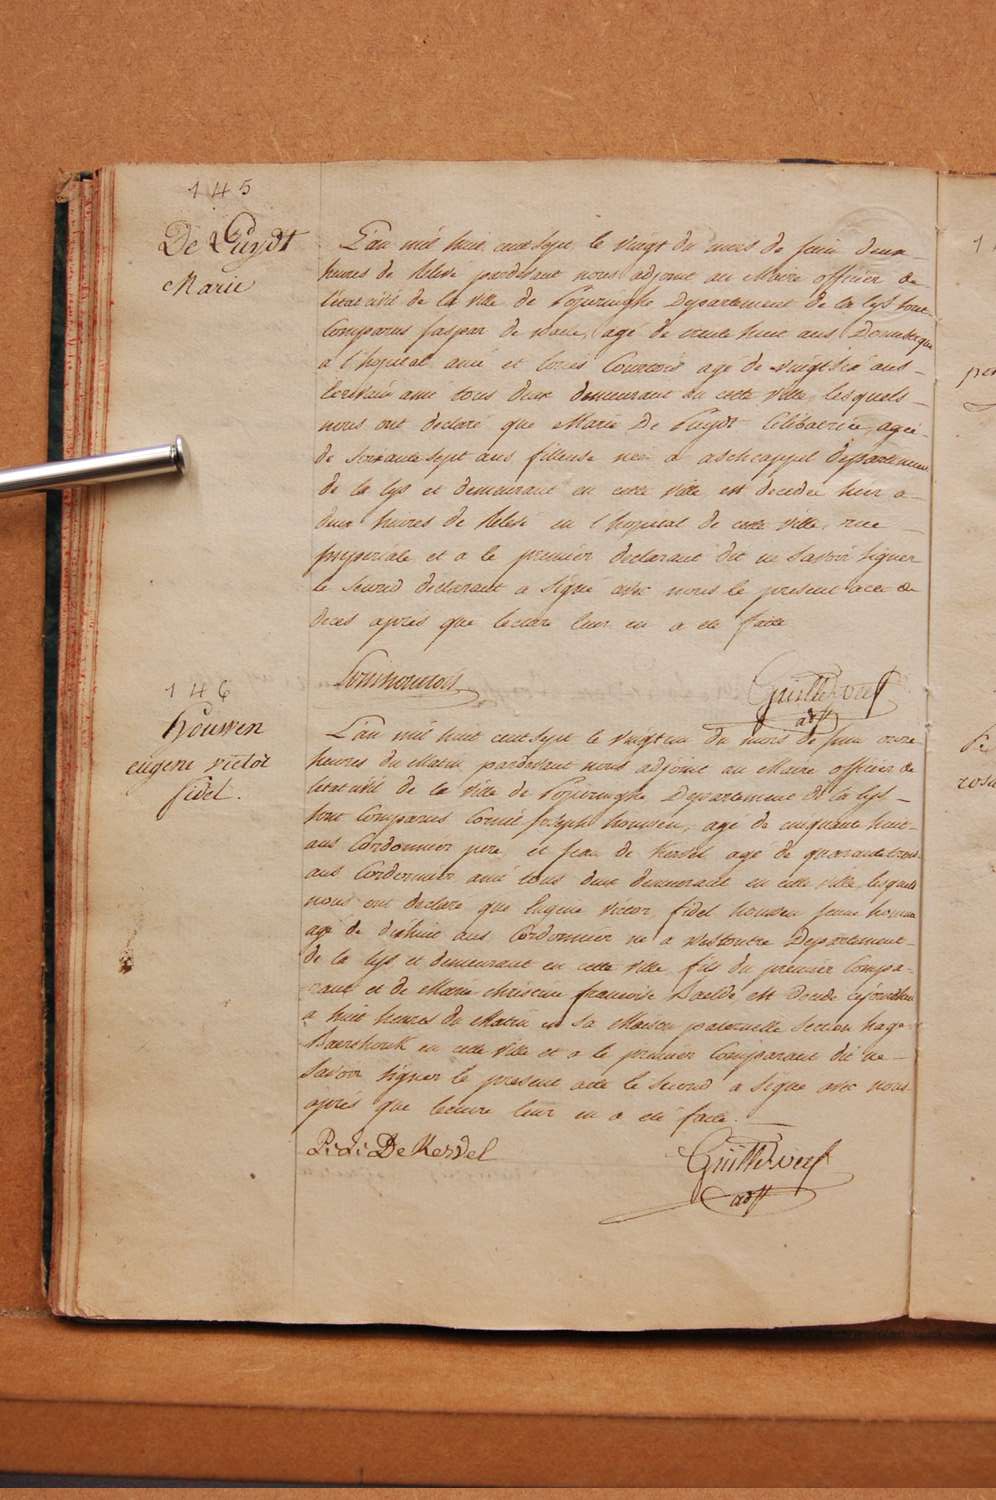 145
De Puydt
Marie
L'an mil huit cent sept le vingt du mois de juin deux
heures de relevé pardevant nous adjoint au Maire officier de
l'état civil de la ville de Poperinghe Departement de la lys sont
Comparus Jaspar de wale, agé de trente huit ans, Domestique
a l'hopital ami et Louis Courtois agé de vingt six ans
Ecrivain ami tous deux demeurant en cette ville, lesquels
nous ont declaré que Marie De Puydt Celibataire, agée
de soixante sept ans fileuse née a aschcappel departement
de la lys et demeurant en cette ville, est decedée hier a
deux heures de relevé en l'hopital de cette ville, rue
jmperiale et a le premier declarant dit ne savoir signer
le second declarant a signé avec nous le present acte de
deces après que lecture leur en a été faite
Guillewerf
adjt
146
houwen
eugene victor
fidel.
L'an mil huit cent sept le vingt un du mois de juin onze
heures du Matin pardevant nous adjoint au Maire officier de
l'état civil de la ville de Poperinghe Departement de la lys
sont Comparus Corneil joseph houwen, agé de cinquante huit
ans Cordonnier pere et jean de Kersel agé de quarante trois
ans Cordonnier ami tous deux demeurant en cette ville, lesquels
nous ont declaré que Eugene victor, fidel houwen jeune homme
agé de dixhuit ans, Cordonnier né a westoutre Departement
de la lys et demeurant en cette ville, fils du premier Compa-
rant et de Marie christine francoise Baelde, est decede cejourdhui
a huit heures du Matin en sa Maison paternelle section hage
Baershouk en cette ville et a le premier Comparant dit ne
savoir signer le present acte le second a signé avec nous
après que lecture leur en a été faite.
De Kersel
Guillewerf
adjt
1
per
fid
rosa